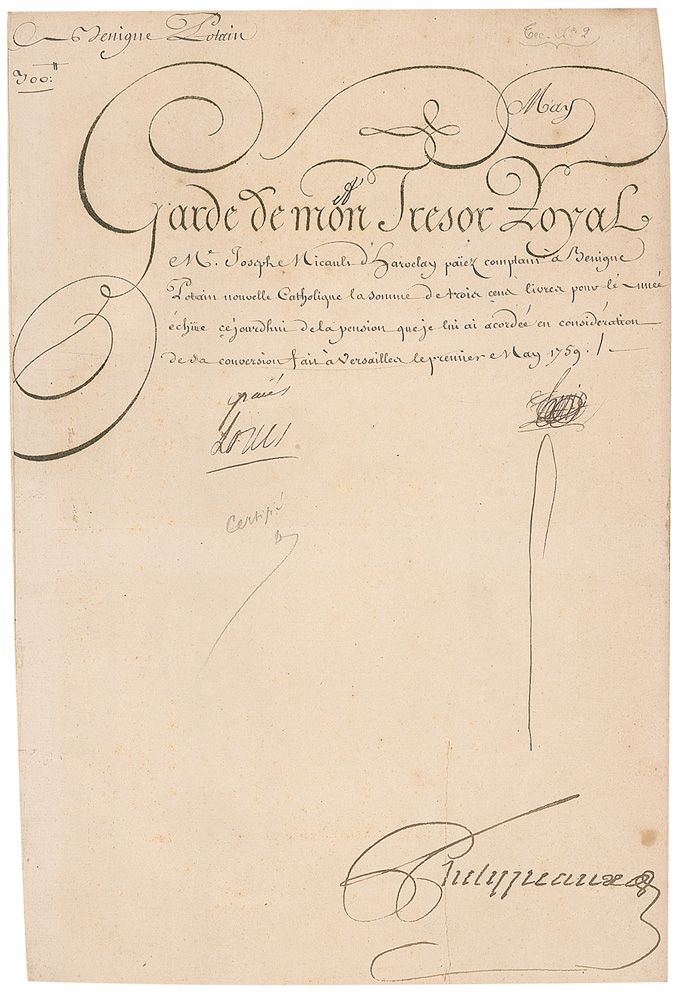 A Benigne Potain
Gec. N° 2
300:ᵗᵗ
May
Garde de mon Tresor Royal
Mᵉ. Joseph Micault d'Harvelay païez comptant a Benigne
Potain nouvelle Catholique la somme de trois cens livres pour l'année
échüe cejourdhui de la pension que je lui ai acordée en considération
de sa conversion fait à Versailles le premier May 1759 ./.
païés
Louis
Louis
Certifié
Phelypeaux